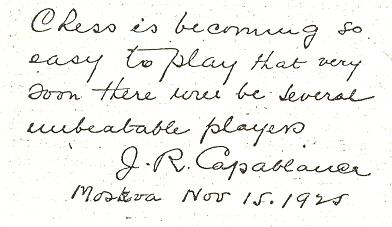 Chess is becoming so
easy to play that very
soon there will be several
unbeatable players
J. R. Capablanca
Moskva Nov 15. 1925